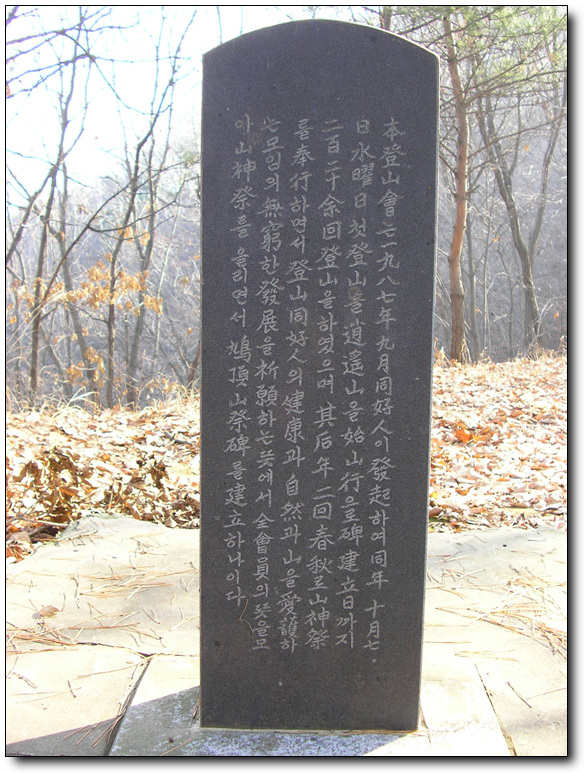 本登山會는 一九八七年 九月 同好人이 發起하여 同年 十月七
日 水曜日 첫登山을 逍遙山을 始山行으로 碑建立日까지
二百二十余回 登山을 하였으며 其后 年二回 春秋로 山神祭
를 奉行하면서 登山同好人의 健康과 自然과 山을 愛護하
는 모임의 無窮한 發展을 祈願하는 뜻에서 全會員의 뜻을 모
아 山神祭를 올리면서 鳩頂山祭碑를 建立하나이다